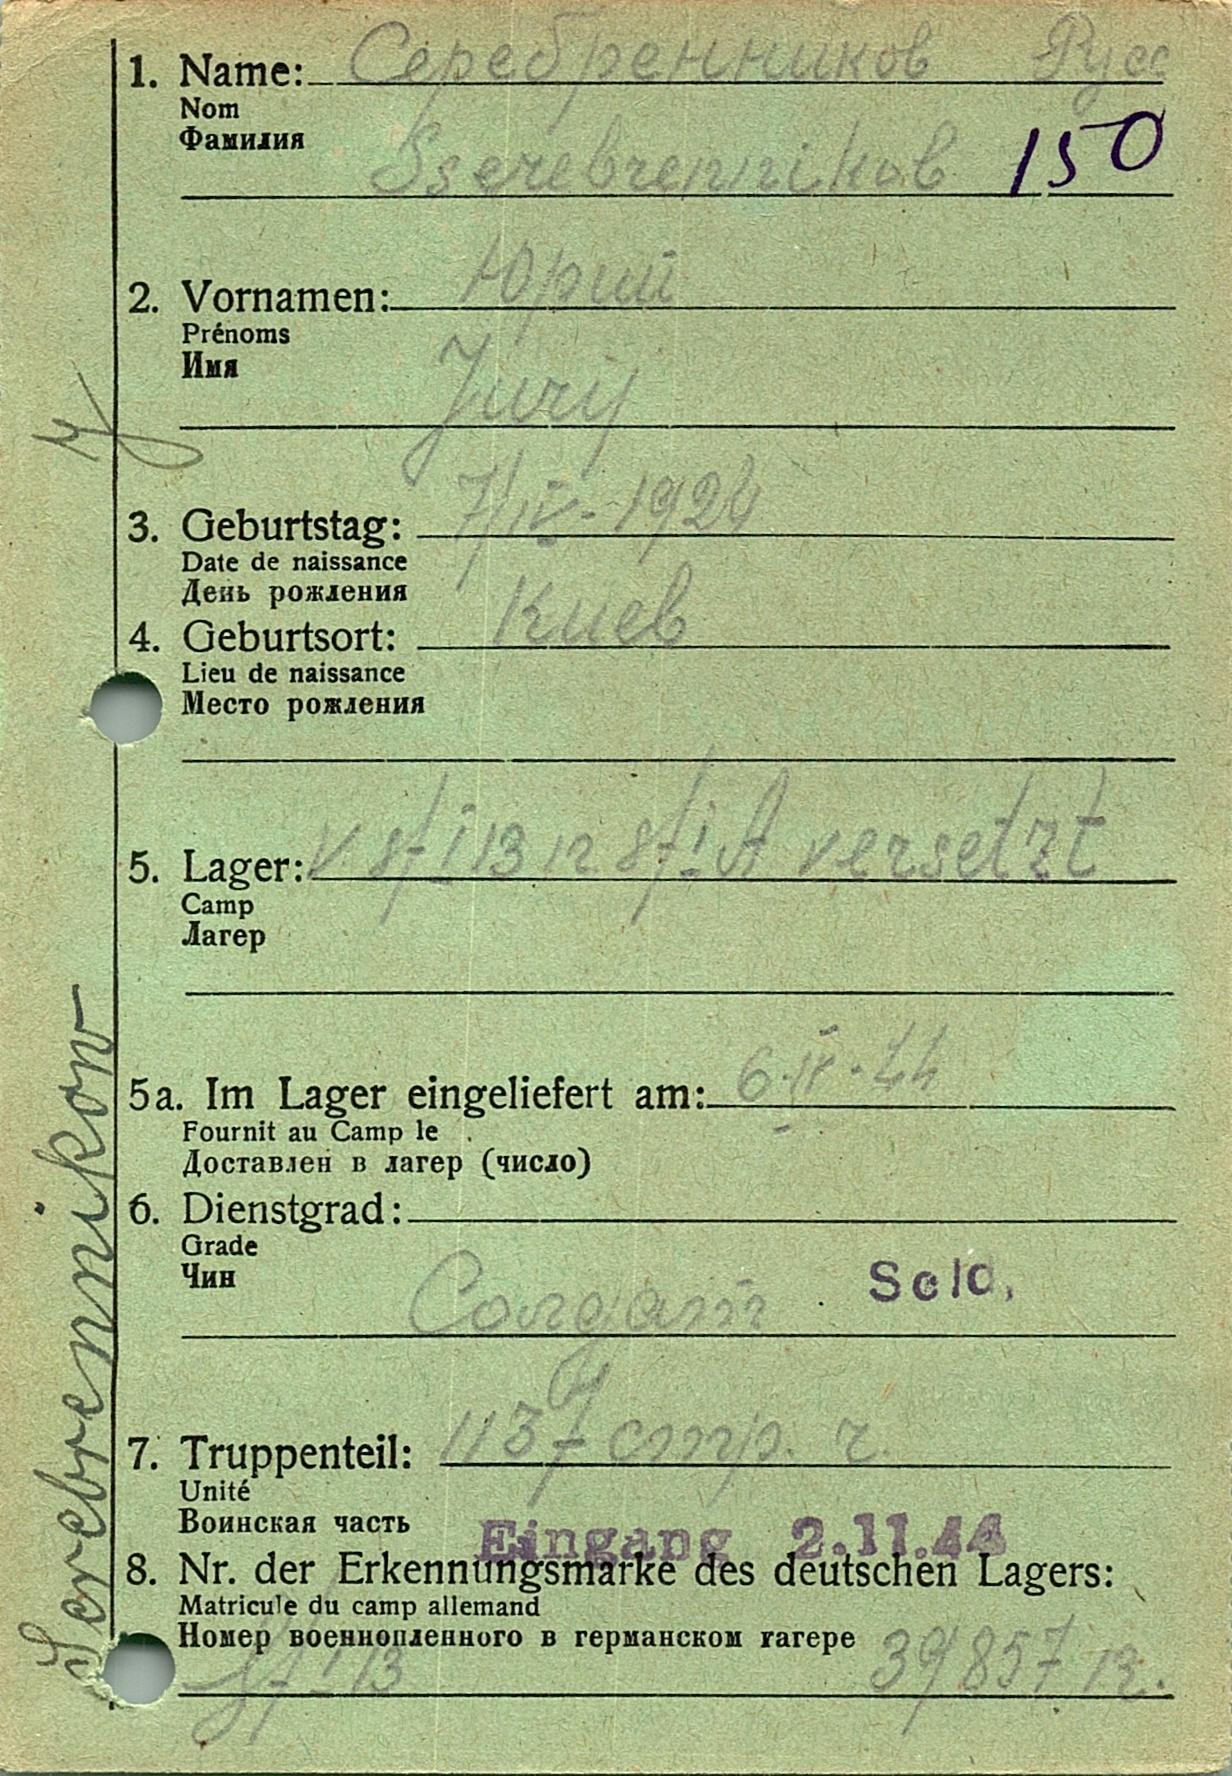 1. Name: Серебренников Русс
Nom
Фамилия
Sserebrennikov 150
2. Vornamen: Юрий
Prénoms
Имя
Jurij
3. Geburtstag: 7/IV - 1924
Date de naissance
День рождения
4. Geburtsort: Киев
Lieu de naissance
Место рождения
5. Lager: versetzt
Camp
Лагер
5a. Im Lager eingeliefert am: 44
Fournit au Camp le
Доставлен в лагер (число)
6. Dienstgrad:
Grade
Чин
Солдат Sold,
7. Truppenteil: 1137 стр.
Unité
Воинская часть
Eingang 2.11.44
8. Nr. der Erkennungsmarke des deutschen Lagers:
Matricule du camp allemand
Номер военнопленного в германском гагере
39857
Serebrennikow